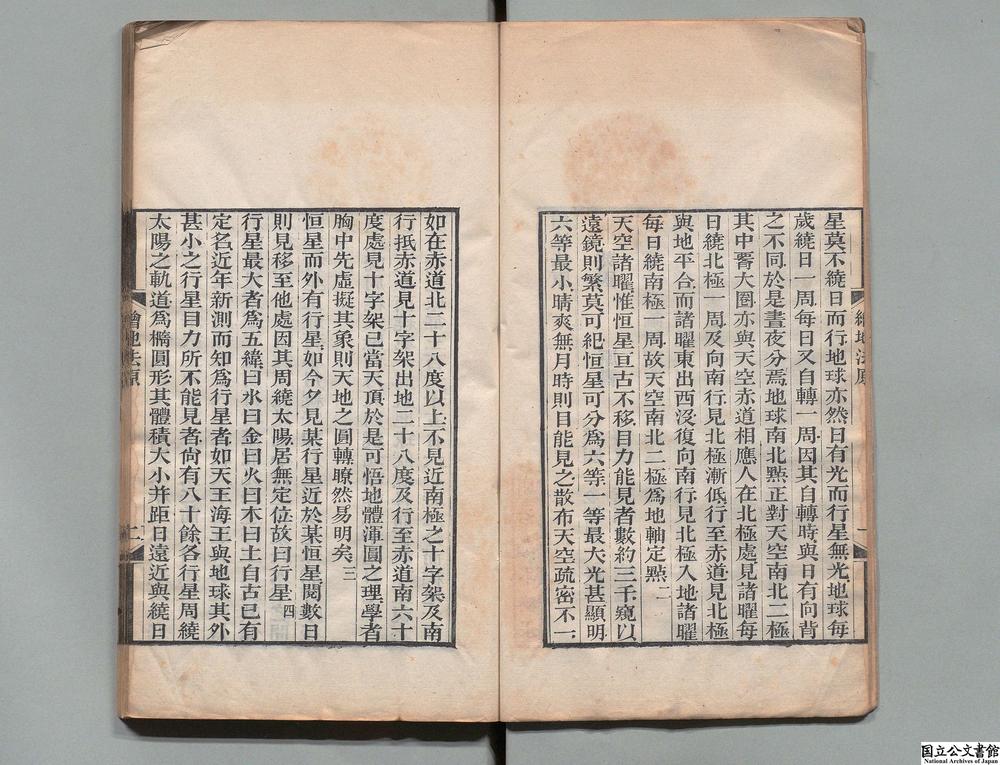 星莫不繞日而行地球亦然日有光而行星無光地球每
歲繞日一周每日又自轉一周因其自轉時與日有向背
之不同於是晝夜分焉地球南北㸃正對天空南北二極
其中腎大圈亦與天空赤道相應人在北極處見諸曜每
日繞北極一周及向南行見北極漸低行至赤道見北極
與地平合而諸曜東出西沒復向南行見北極入地諸曜
每日繞南極一周故天空南北二極爲地軸定㸃二
天空諸曜惟恒星亘古不移目力能見者數約三千窺以
遠鏡則繁莫可紀恒星可分爲六等一等最大光甚顯明
六等最小晴爽無月時則目能見之散布天空疏密不一
繪地法原
一
如在赤道北二十八度以上不見近南極之十字架及南
行抵赤道見十字架出地二十八度及行至赤道南六十
度處見十字架已當天頂於是可悟地體渾圓之理學者
胸中先虛擬其象則天地之圓轉暸然易明矣三
恒星而外有行星如今夕見某行星近於某恒星閱數日
則見移至他處因其周繞太陽居無定位故曰行星四
行星最大者爲五緯曰水曰金曰火曰木曰土自古已有
定名近年新測而知爲行星者如天王海王與地球其外
甚小之行星目力所不能見者尙有八十餘各行星周繞
太陽之軌道爲橢圓形其體積大小并距日遠近與繞日
繪地法原
二
国立公文書館
National Archives of Japan